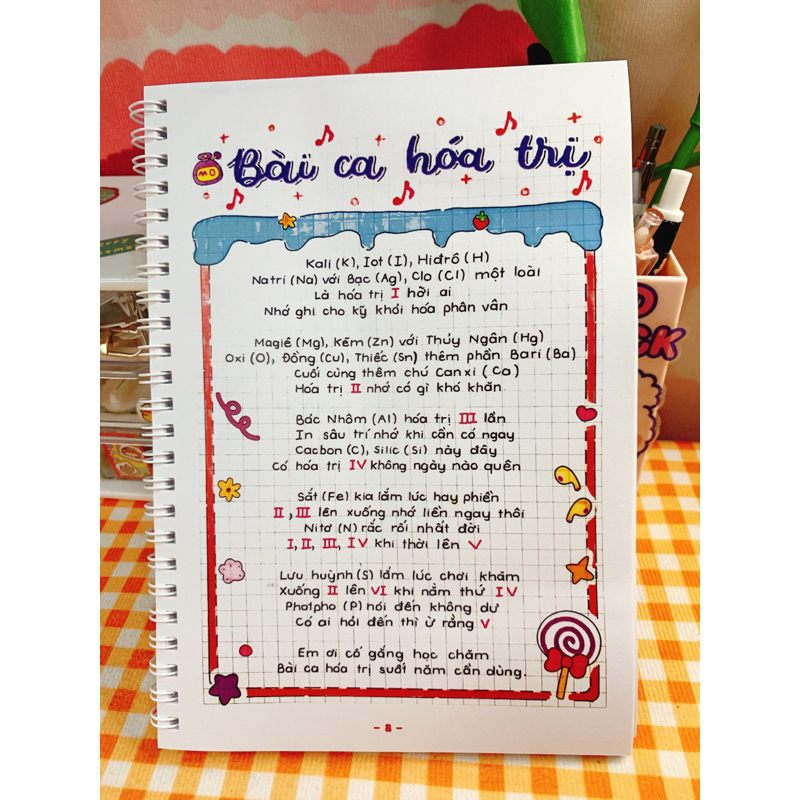 Bài ca hóa trị
Kali (K), Iot (I), Hiđrô (H)
Natri (Na) với Bạc (Ag), Clo (Cl) một loài
Là hóa trị I hỡi ai
Nhớ ghi cho kỹ khỏi hóa phân vân
Magiê (Mg), Kẽm (Zn) với Thủy Ngân (Hg)
Oxi (O), Đồng (Cu), Thiếc (Sn) thêm phần Bari (Ba)
Cuối cùng thêm chú Canxi (Ca)
Hóa trị II nhớ có gì khó khăn
Bác Nhôm (Al) hóa trị III lần
In sâu trí nhớ khi cần có ngay
Cacbon (C), Silic (Si) này đây
Có hóa trị IV không ngày nào quên
Sắt (Fe) kia lắm lúc hay phiền
II, III lên xuống nhớ liền ngay thôi
Nitơ (N) rắc rối nhất đời
I, II, III, IV khi thời lên V
Lưu huỳnh (S) lắm lúc chơi khăm
Xuống II lên VI khi nằm thứ IV
Photpho (P) nói đến không dư
Có ai hỏi đến thì ừ rằng V
Em ơi cố gắng học chăm
Bài ca hóa trị suốt năm cần dùng.
- 8 -